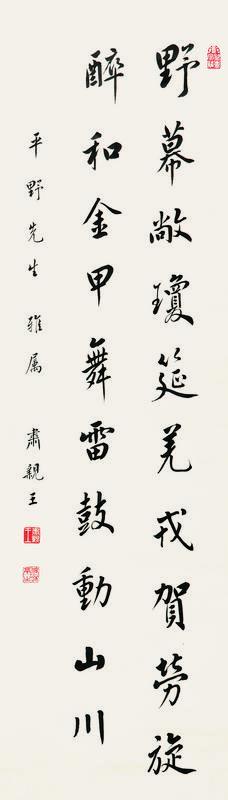 野幕敞瓊筵羌戎賀勞旋
醉和金甲舞雷鼓動山川
平野先生雅属 肅親王